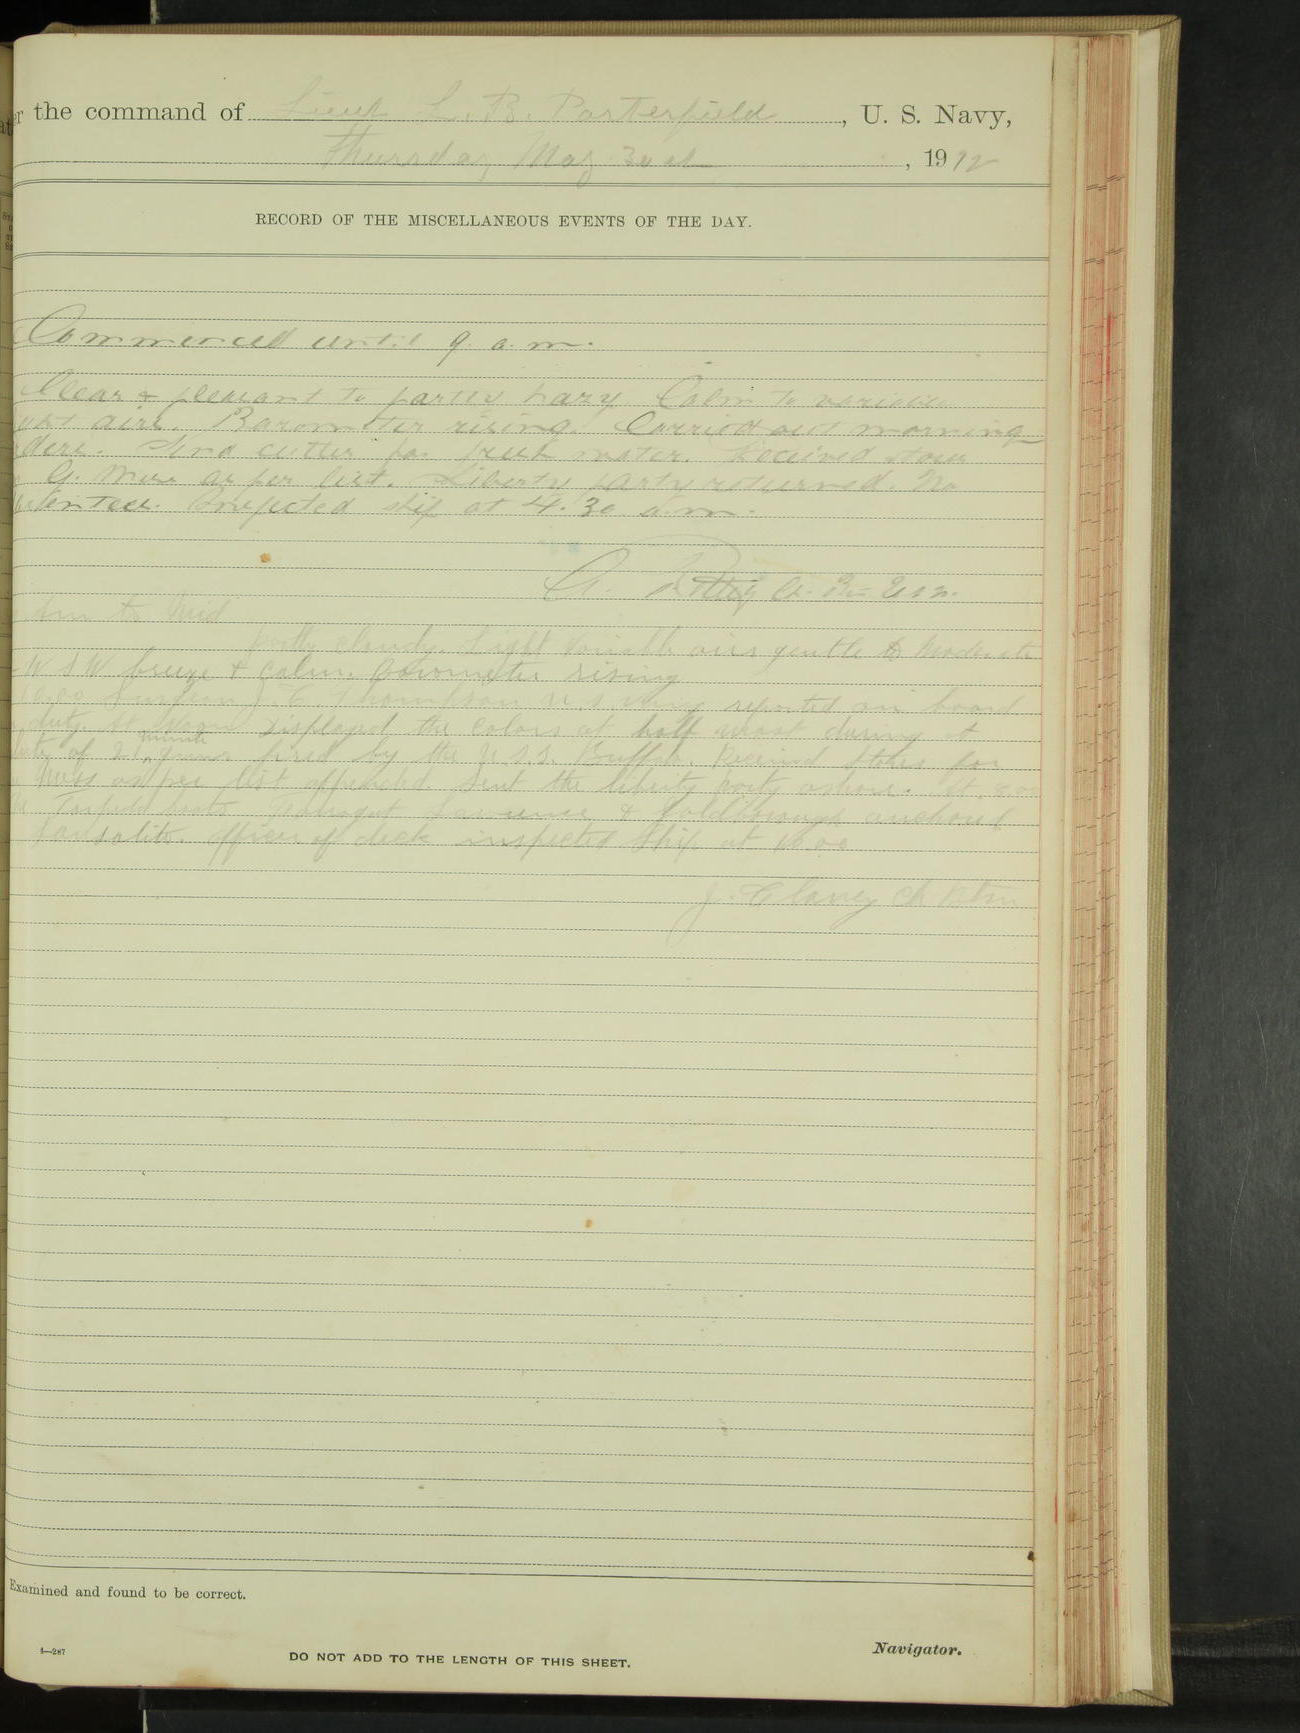 the command of Lieut L. B. Porterfield, U. S. Navy,
Thursday May 30th, 1912
RECORD OF THE MISCELLANEOUS EVENTS OF THE DAY.
Commenced until 9 a.m.
Clear & pleasant to partly hazy Calm to various
airs. Barometer rising. Carried out morning
Send cutter for fresh water. Received stores
G. Mess as per list. Liberty party returned. No
Inspected ship at 4.30 a.m.
to Mid
partly cloudy. Light Variable airs gentle to Moderate
W S W breeze & calm. Barometer rising
10.00 Surgeon J. C. Thompson U. S. Navy reported on board
duty. At Noon Displayed the colors at half mast during
of 21 minute guns fired by the U.S.S. Buffalo. Received stores for
Mess as per list appended. Sent the liberty party ashore. At
Torpedo boats Farragut Lawrence & Goldsborough anchored
Sausalito. Officer of deck inspected ship at
J. Clancy Ch Btsn
Examined and found to be correct.
4—287
DO NOT ADD TO THE LENGTH OF THIS SHEET.
Navigator.